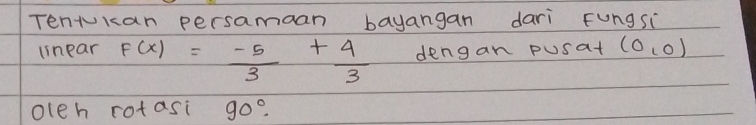 Tentukan persamaan bayangan dari Fungsi
linear F(x) = -5/3 + 4/3 dengan pusat (0,0)
oleh rotasi 90°.